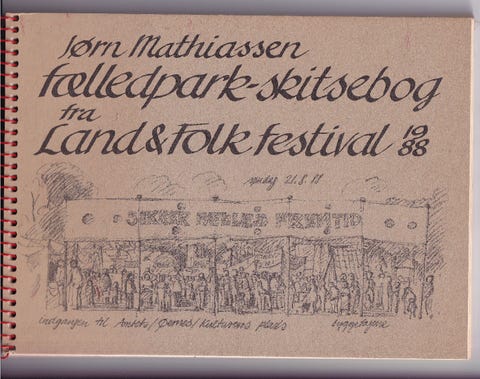 Jørn Mathiassen
fælledpark-skitsebog
fra
Land & Folk festival 1988
søndag 21.8.88
SIKKER FÆLLES FREMTID
indgangen til Amtets/Øernes/Kulturens plads
byggedagene